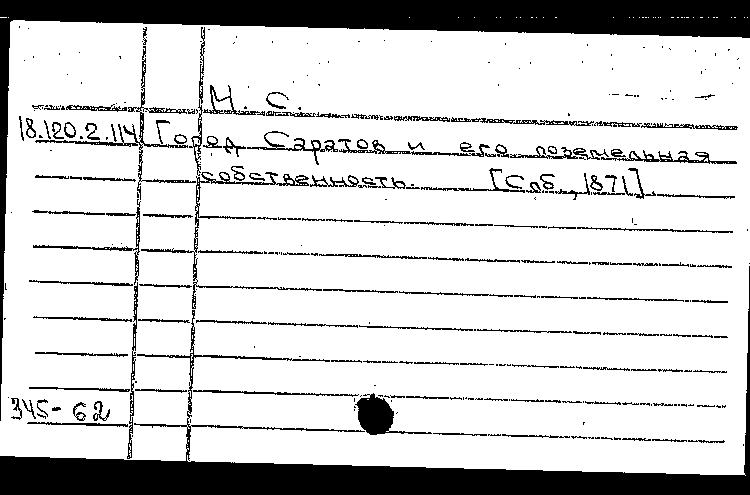 М. С.
18.120.2.114 Город Саратов и его поземельная
собственность. [Спб., 1871].
345-62